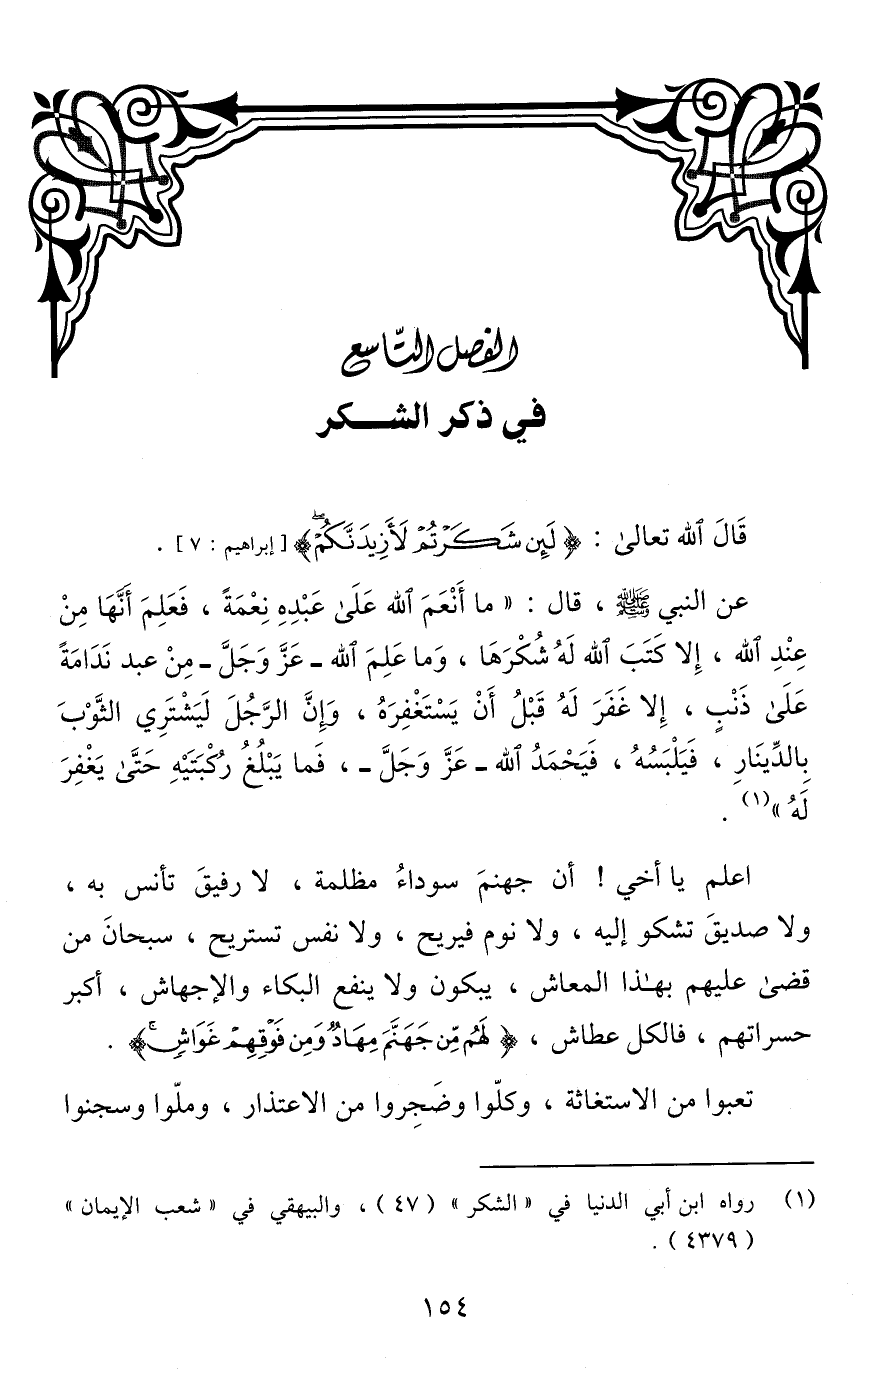 الفصل التّاسع
في ذكر الشكر
قَالَ ٱلله تعالىٰ : ﴿ لَئِن شَكَرۡتُمۡ لَأَزِيدَنَّكُمۡۖ ﴾ [ إبراهيم : ٧ ] .
عن النبي ﷺ ، قال : « ما أَنْعَمَ ٱلله عَلَىٰ عَبْدِهِ نِعْمَةً ، فَعَلِمَ أَنَّهَا مِنْ
عِنْدِ ٱلله ، إِلا كَتَبَ ٱلله لَهُ شُكْرَهَا ، وَما عَلِمَ ٱلله ـ عَزَّ وَجَلَّ ـ مِنْ عبد نَدَامَةً
عَلَىٰ ذَنْبٍ ، إِلا غَفَرَ لَهُ قَبْلُ أَنْ يَسْتَغْفِرَهُ ، وَإِنَّ الرَّجُلَ لَيَشْتَرِي الثَّوْبَ
بِالدِّينَارِ ، فَيَلْبَسُهُ ، فَيَحْمَدُ ٱلله ـ عَزَّ وَجَلَّ ـ ، فَما يَبْلُغُ رُكْبَتَيْهِ حَتَّىٰ يَغْفِرَ
لَهُ »(١) .
اعلم يا أخي ! أن جهنمَ سوداءُ مظلمة ، لا رفيقَ تأنس به ،
ولا صديقَ تشكو إليه ، ولا نوم فيريح ، ولا نفس تستريح ، سبحانَ من
قضىٰ عليهم بهـٰذا المعاش ، يبكون ولا ينفع البكاء والإجهاش ، أكبر
حسراتهم ، فالكل عطاش ، ﴿ لَهُم مِّن جَهَنَّمَ مِهَادٞ وَمِن فَوۡقِهِمۡ غَوَاشٖۚ ﴾ .
تعبوا من الاستغاثة ، وكلّوا وضَجِروا من الاعتذار ، وملّوا وسجنوا
(١) رواه ابن أبي الدنيا في « الشكر » ( ٤٧ ) ، والبيهقي في « شعب الإيمان »
( ٤٣٧٩ ) .
١٥٤